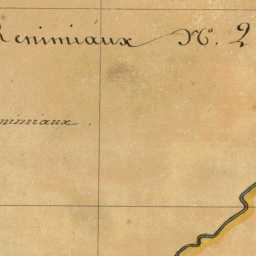 Renimiaux N. 2
nimiaux.